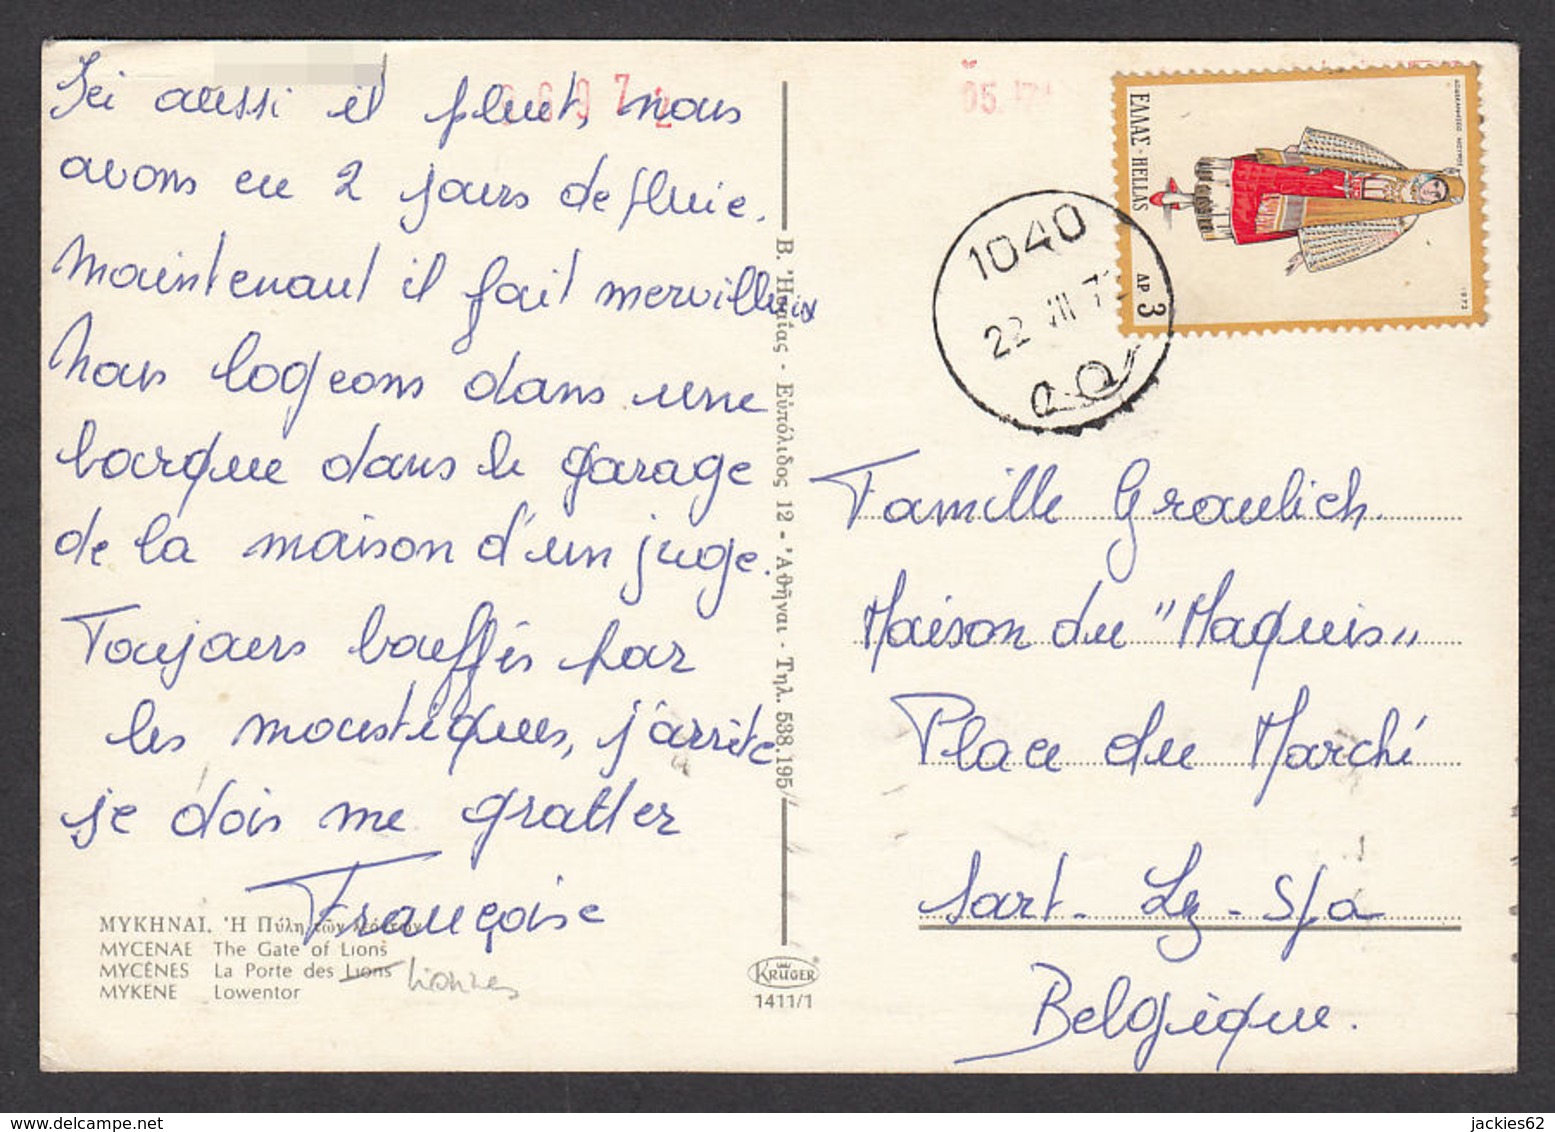 Ici aussi il pleut, nous
avons eu 2 jours de pluie.
Maintenant il fait merveilleux
Nous logeons dans une
barque dans le garage
de la maison d'un juge.
Toujours bouffés par
les moustiques, j'arrête
je dois me gratter
Françoise
ΜΥΚΗΝΑΙ. Ἡ Πύλη τῶν
MYCENAE The Gate of Lions
MYCÈNES La Porte des Lions lionnes
MYKENE Löwentor
Β. Ἠσαΐας - Εὐπόλιδος 12 - Ἀθῆναι - Τηλ. 538.195
KRÜGER
1411/1
05.
ΕΛΛΑΣ · HELLAS
ΔΡ 3
1972
1040
22 VII 7
Famille Graulich
Maison du "Maquis"
Place du Marché
Sart-Lz-Spa
Belgique.
jackies62